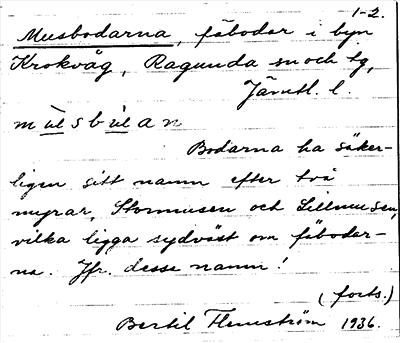 1-2.
Musbodarna, fäbodar i byn
Krokvåg, Ragunda sn och tg,
Jämtl. l.
Bodarna ha säker-
ligen sitt namn efter två
myrar, Stormusen och Lillmusen,
vilka ligga sydväst om fäbodar-
na. Jfr. desse namn!
(forts.)
Bertil Flemström 1936.